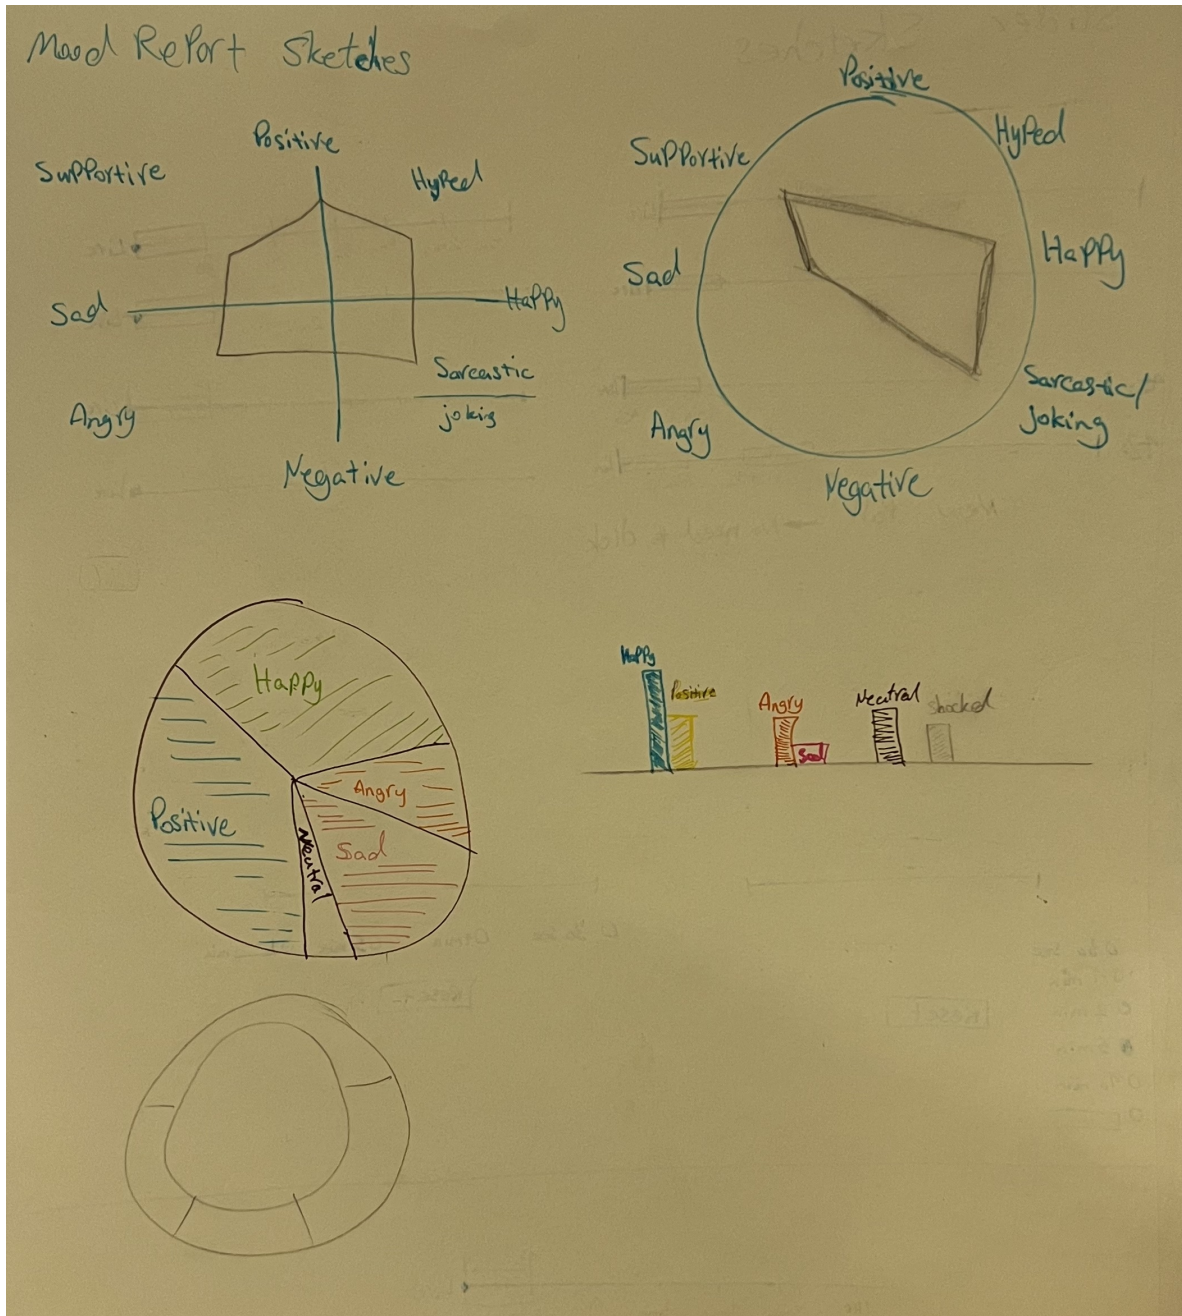 Mood Report Sketches
Positive
Supportive
Hyped
Sad
Happy
Sarcastic
joking
Angry
Negative
Positive
Hyped
Supportive
Happy
Sad
Sarcastic/
Joking
Angry
Negative
Happy
Angry
Positive
Sad
Neutral
Happy
Positive
Angry
Sad
Neutral
Shocked